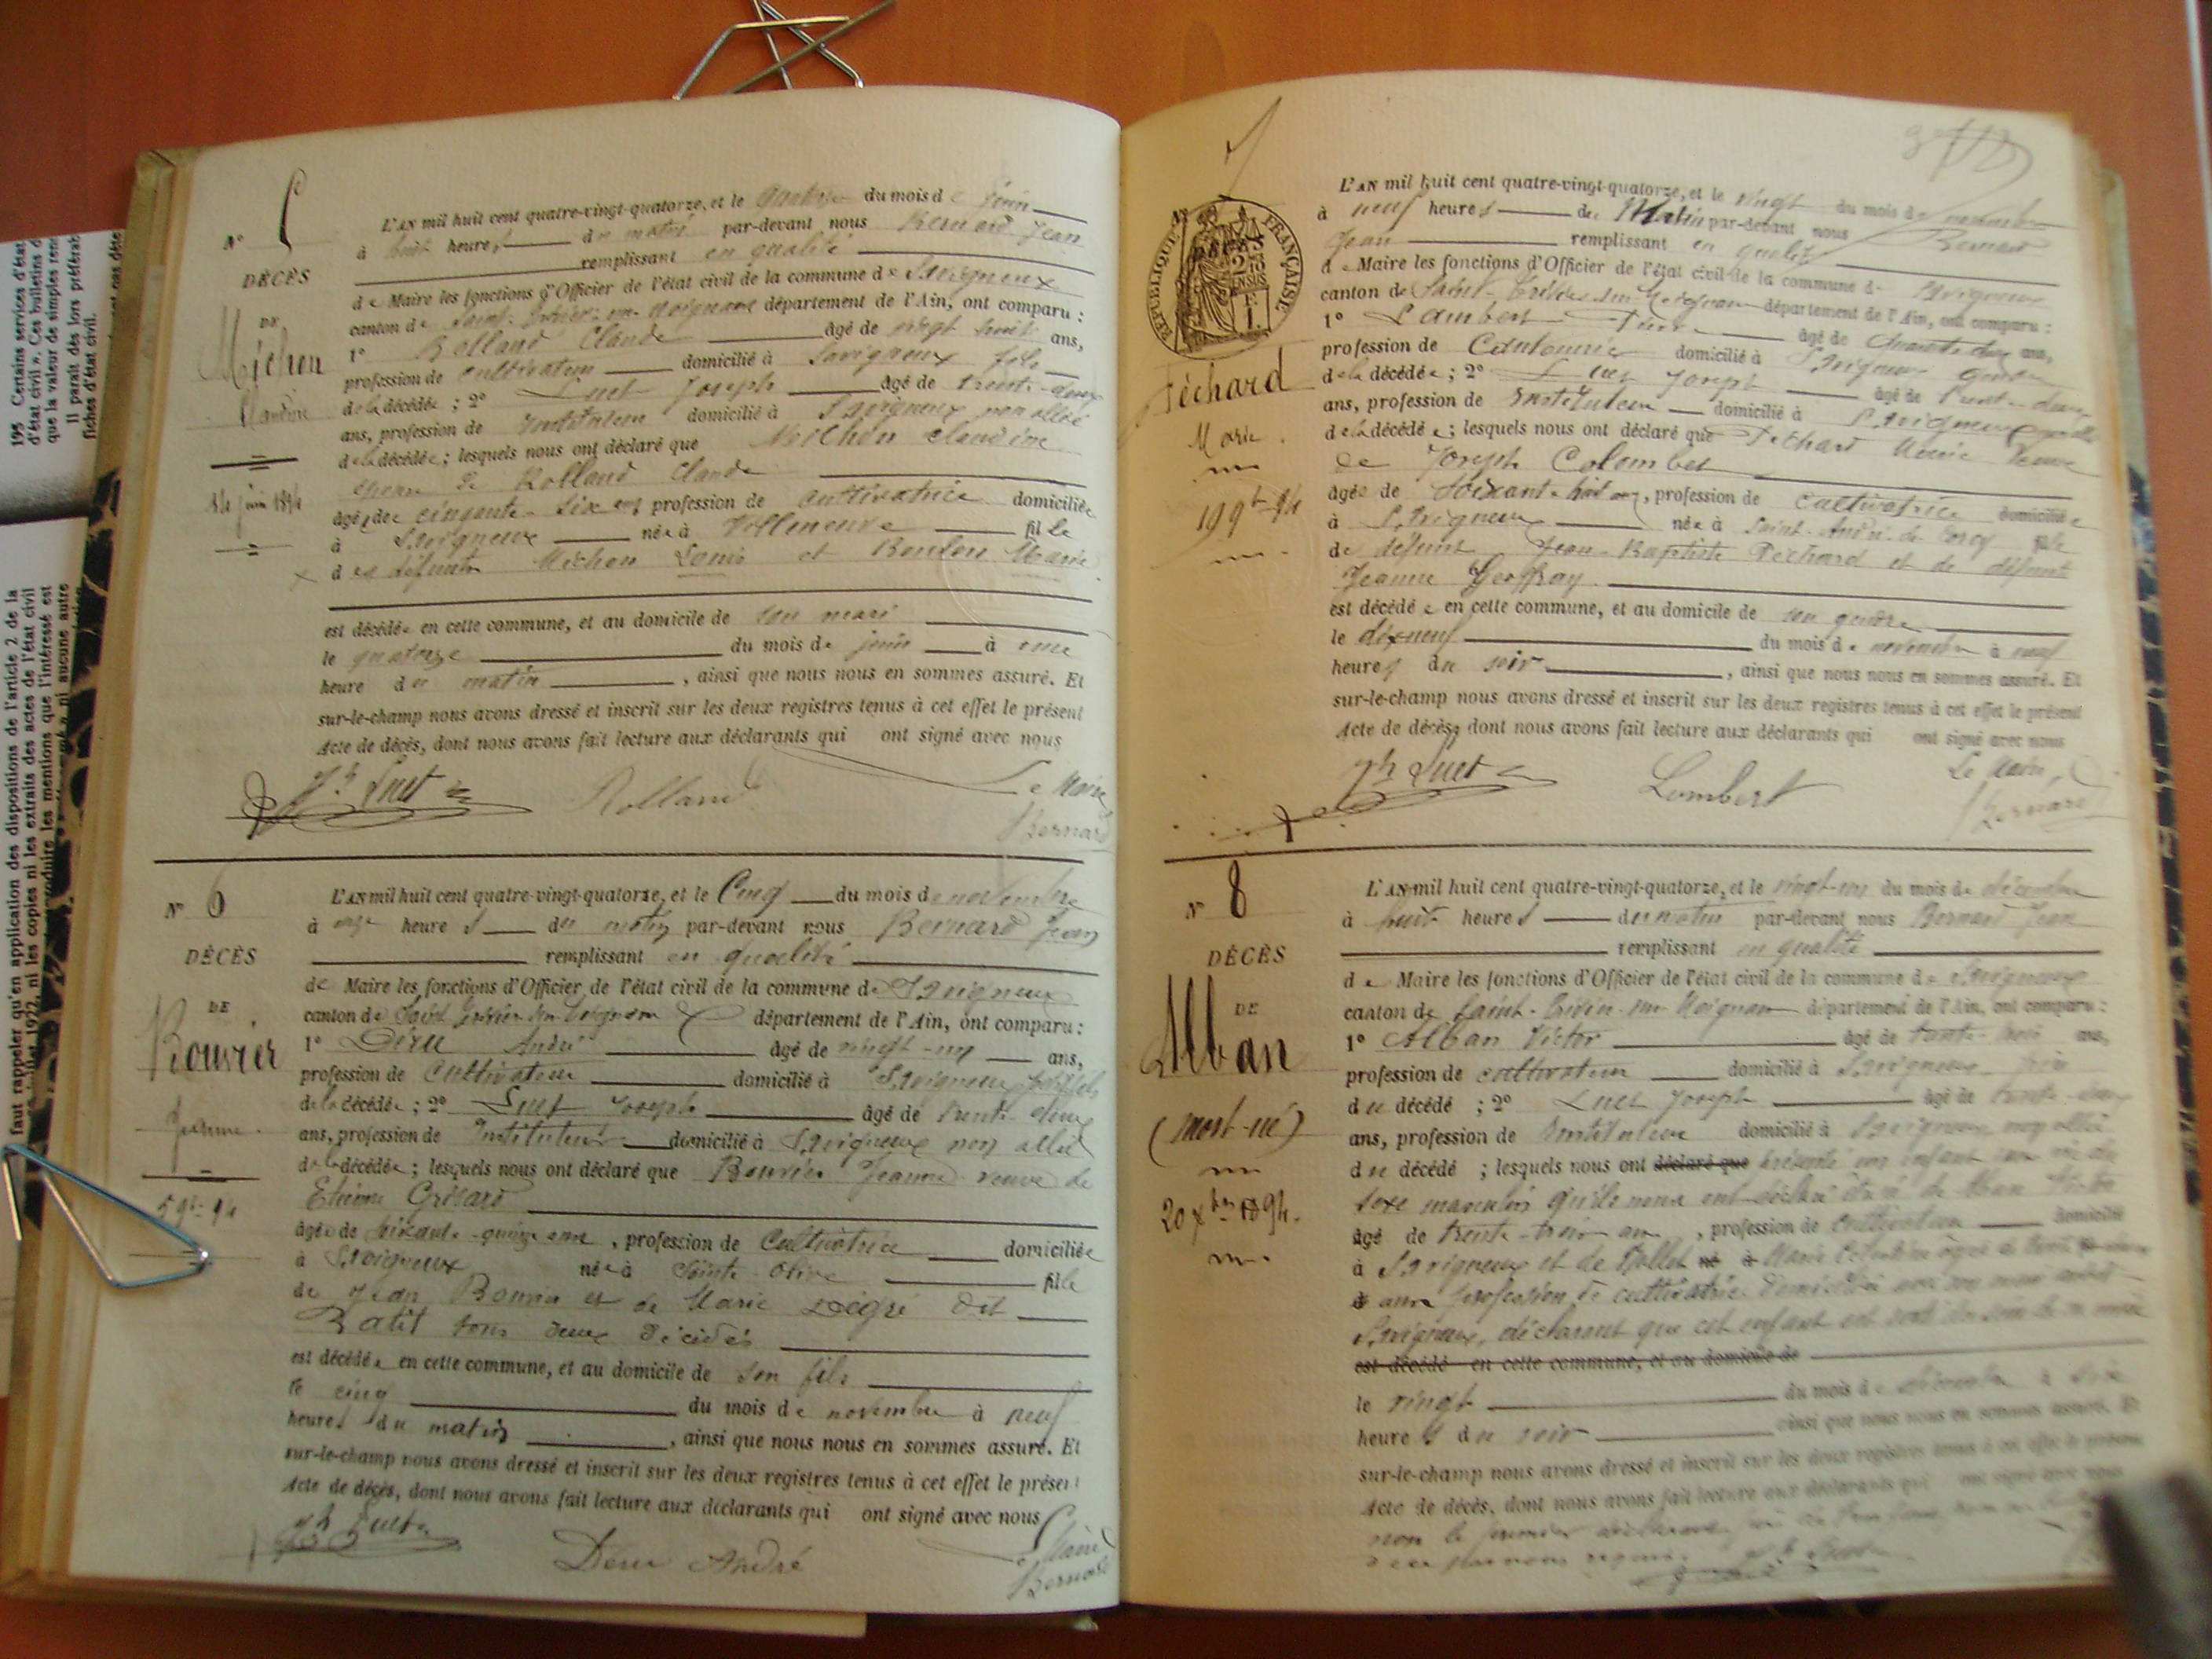 N° 5
DÉCÈS
DE
Michon
Claudine
14 juin 1894
L'AN mil huit cent quatre-vingt-quatorze, et le quatorze du mois de juin
à huit heures du matin par-devant nous Bernard Jean
remplissant en qualité
de Maire les fonctions d'Officier de l'état civil de la commune de Savigneux
canton de Saint-Trivier-sur-Moignans département de l'Ain, ont comparu :
1° Rolland Claude âgé de vingt huit ans,
profession de cultivateur domicilié à Savigneux fils
de la décédée ; 2° Luet Joseph âgé de trente-deux
ans, profession de instituteur domicilié à Savigneux non allié
de la décédée ; lesquels nous ont déclaré que Michon Claudine
de Rolland Claude
âgée de cinquante-six ans profession de cultivatrice domiciliée
à Savigneux née à Villeneuve fille
des défunts Michon Louis et Marie
est décédée en cette commune, et au domicile de son mari
le quatorze du mois de juin à une
heure du matin , ainsi que nous nous en sommes assuré. Et
sur-le-champ nous avons dressé et inscrit sur les deux registres tenus à cet effet le présent
Acte de décès, dont nous avons fait lecture aux déclarants qui ont signé avec nous
Jh Luet Rolland Le Maire
Bernard
N° 6
DÉCÈS
DE
Bouvier
Jeanne
5 9bre 94
L'AN mil huit cent quatre-vingt-quatorze, et le Cinq du mois de novembre
à onze heures du matin par-devant nous Bernard Jean
remplissant en qualité
de Maire les fonctions d'Officier de l'état civil de la commune de Savigneux
canton de Saint Trivier sur Moignans département de l'Ain, ont comparu :
1° André âgé de vingt-un ans,
profession de cultivateur domicilié à Savigneux petit fils
de la décédée ; 2° Luet Joseph âgé de trente deux
ans, profession de Instituteur domicilié à Savigneux non allié
de la décédée ; lesquels nous ont déclaré que Bouvier Jeanne veuve de
Etienne
âgée de soixante-quinze ans , profession de Cultivatrice domiciliée
à Savigneux née à Sainte Olive fille
de Jean et de Marie dit
tous deux décédés
est décédée en cette commune, et au domicile de son fils
le cinq du mois de novembre à neuf
heures du matin , ainsi que nous nous en sommes assuré. Et
sur-le-champ nous avons dressé et inscrit sur les deux registres tenus à cet effet le présent
Acte de décès, dont nous avons fait lecture aux déclarants qui ont signé avec nous
Jh Luet André Maire
Bernard
7
RÉPUBLIQUE FRANÇAISE
Péchard
Marie
19 9bre 94
L'AN mil huit cent quatre-vingt-quatorze, et le vingt du mois de novembre
à neuf heures du Matin par-devant nous Bernard
Jean remplissant en qualité
de Maire les fonctions d'Officier de l'état civil de la commune de Savigneux
canton de Saint-Trivier-sur-Moignans département de l'Ain, ont comparu :
1° Lambert âgé de quarante deux ans,
profession de Cantonnier domicilié à Savigneux gendre
de la décédée ; 2° Luet Joseph âgé de trente-deux
ans, profession de Instituteur domicilié à Savigneux
de la décédée ; lesquels nous ont déclaré que Péchard Marie Veuve
de Joseph Colombet
âgée de soixante-huit ans, profession de cultivatrice domiciliée
à Savigneux née à Saint-André-de-Corcy fille
de défunt Jean-Baptiste Péchard et de défunte
Jeanne Geoffray
est décédée en cette commune, et au domicile de son gendre
le dix-neuf du mois de novembre à neuf
heures du soir , ainsi que nous nous en sommes assuré. Et
sur-le-champ nous avons dressé et inscrit sur les deux registres tenus à cet effet le présent
Acte de décès, dont nous avons fait lecture aux déclarants qui ont signé avec nous
Jh Luet Lambert Le Maire,
Bernard
N° 8
DÉCÈS
DE
Alban
(mort-né)
20 Xbre 1894.
L'AN mil huit cent quatre-vingt-quatorze, et le vingt-un du mois de décembre
à huit heures du matin par-devant nous Bernard Jean
remplissant en qualité
de Maire les fonctions d'Officier de l'état civil de la commune de Savigneux
canton de Saint-Trivier-sur-Moignans département de l'Ain, ont comparu :
1° Alban Victor âgé de trente-trois ans,
profession de cultivateur domicilié à Savigneux père
du décédé ; 2° Luet Joseph âgé de trente-deux
ans, profession de Instituteur domicilié à Savigneux non allié
du décédé ; lesquels nous ont déclaré que présenté un enfant sans vie du
sexe masculin qu'ils nous ont déclaré être né de Alban Victor
âgé de trente-trois ans , profession de cultivateur domicilié
à Savigneux et de Marie
ans profession de cultivatrice domiciliée avec son mari
Savigneux, déclarent que cet enfant est sorti du sein de sa mère
est décédé en cette commune, et au domicile de
le vingt du mois de décembre à six
heures du soir ainsi que nous nous en sommes assuré. Et
sur-le-champ nous avons dressé et inscrit sur les deux registres tenus à cet effet le présent
Acte de décès, dont nous avons fait lecture aux déclarants qui ont signé avec nous
non le premier
195 Certains services d'état
d'état civil ». Ces bulletins d
que la valeur de simples rens
Il paraît dès lors préférab
fiches d'état civil.
faut rappeler qu'en application des dispositions de l'article 2 de la
1922, ni les copies ni les extraits des actes de l'état civil
les mentions que l'intéressé est
ni aucune autre